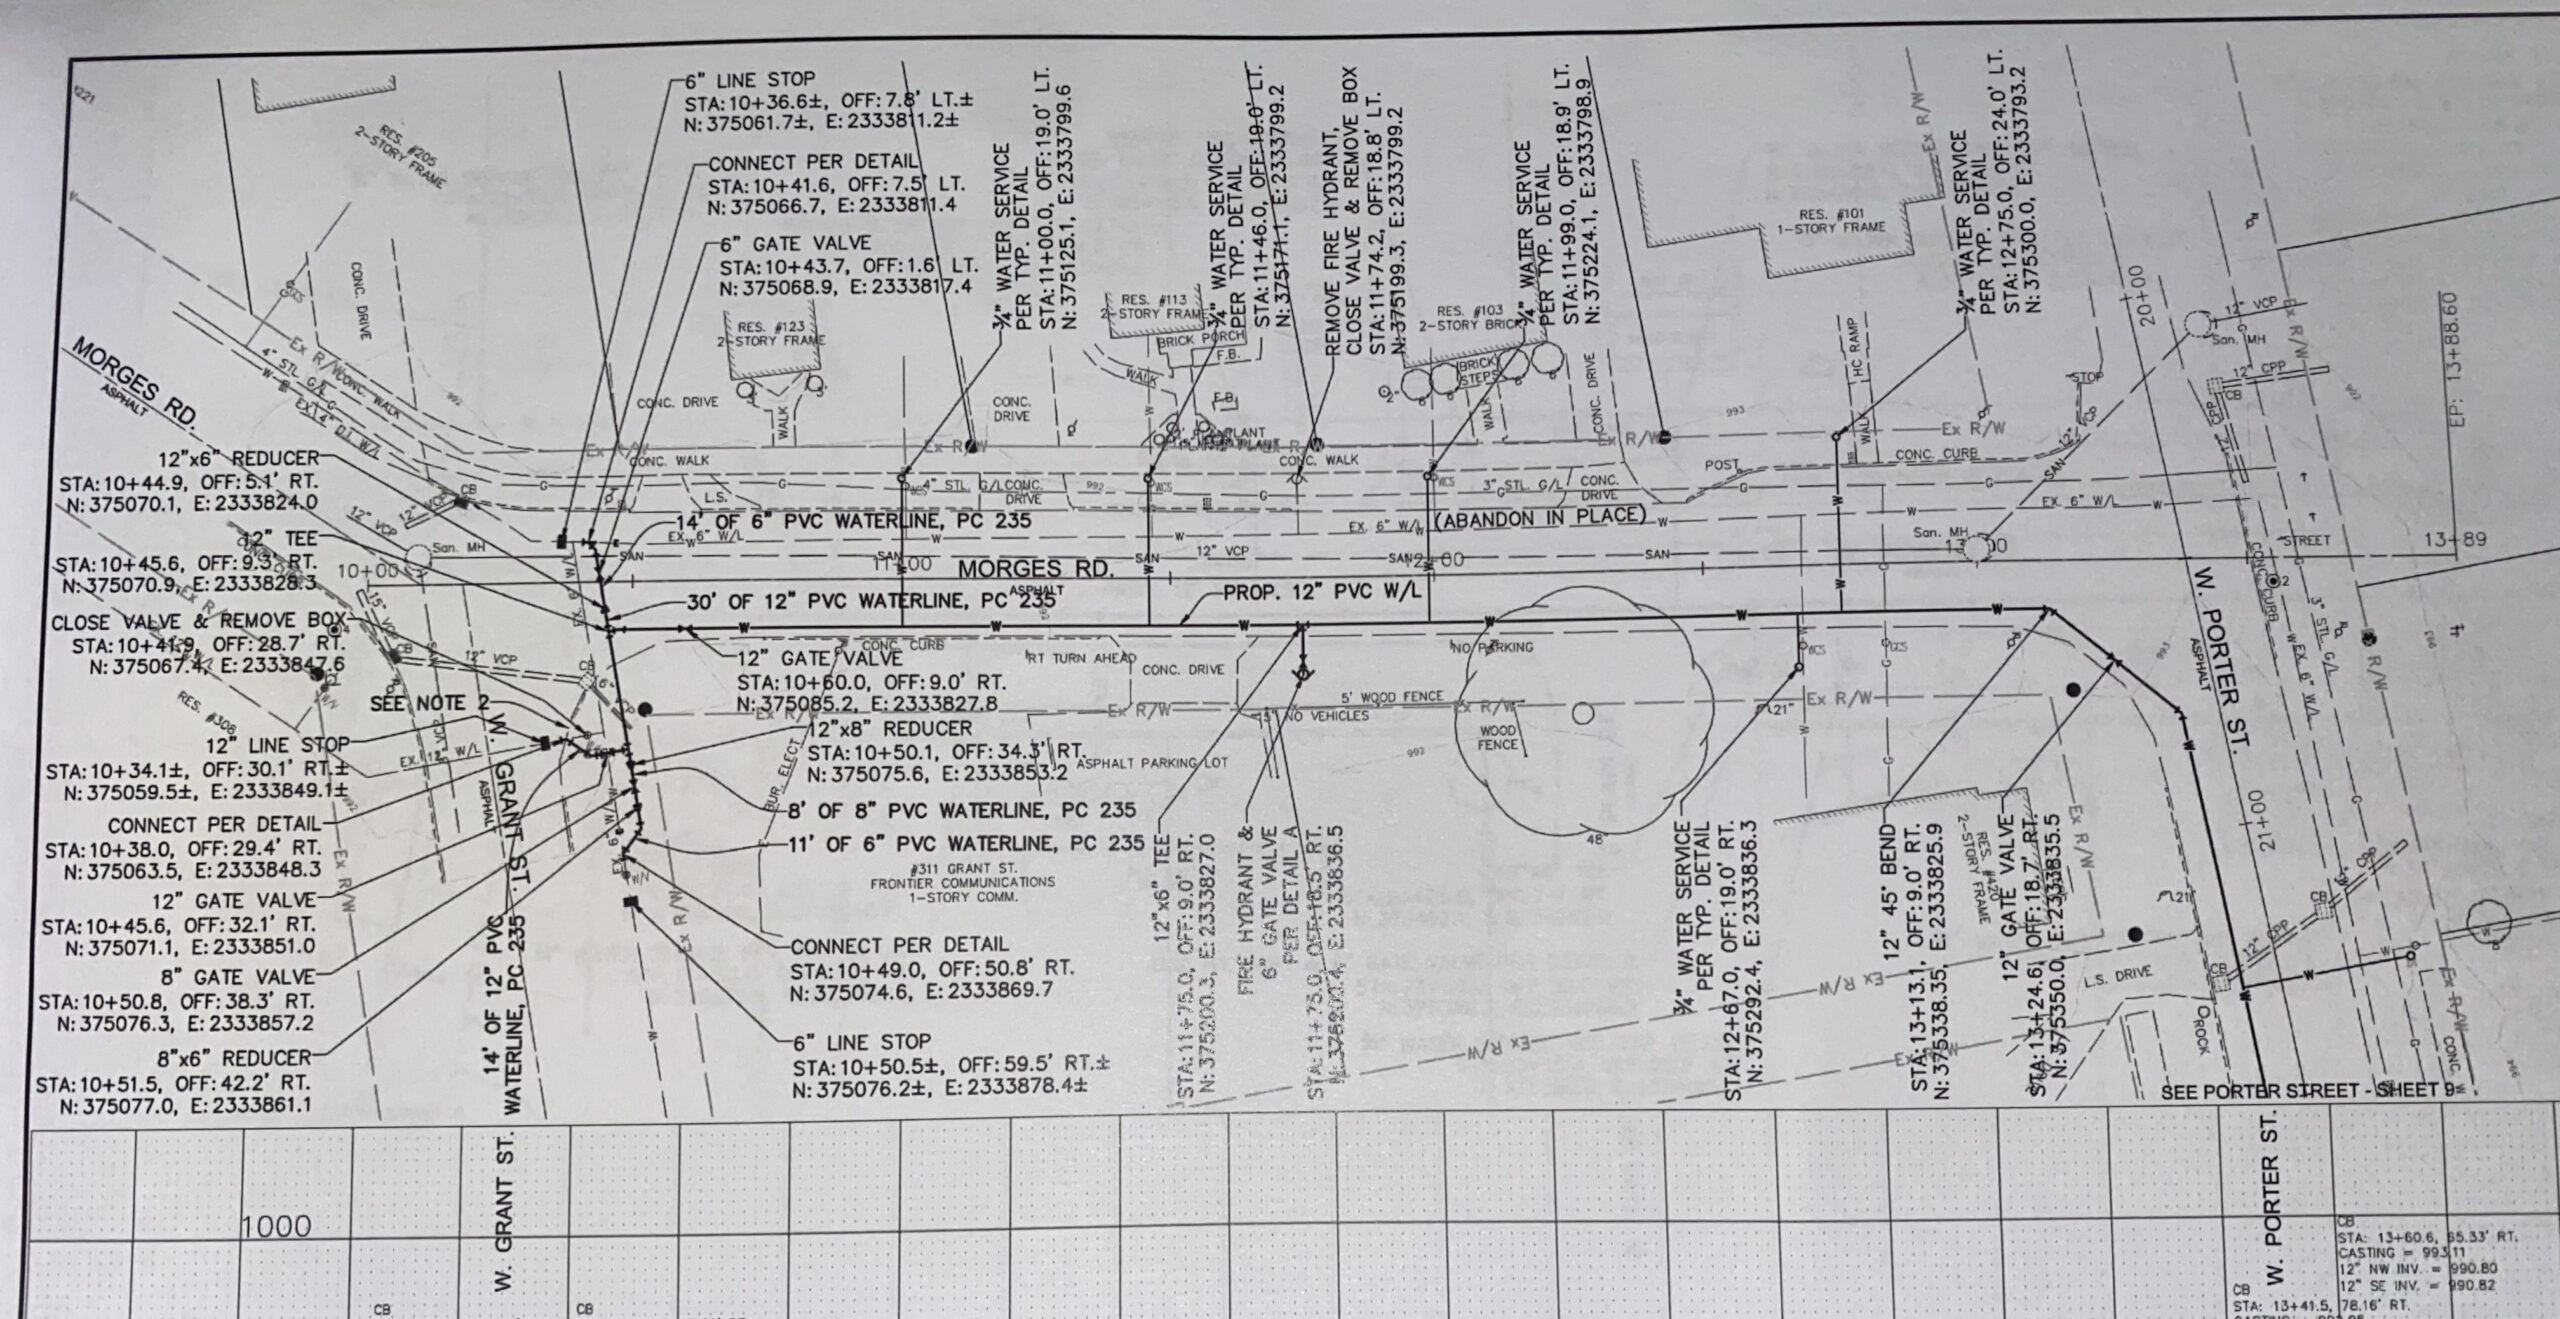 6" LINE STOP
STA: 10+36.6±, OFF: 7.8' LT.±
N: 375061.7±, E: 2333811.2±
CONNECT PER DETAIL
STA: 10+41.6, OFF: 7.5' LT.
N: 375066.7, E: 2333811.4
6" GATE VALVE
STA: 10+43.7, OFF: 1.6' LT.
N: 375068.9, E: 2333817.4
¾" WATER SERVICE
PER TYP. DETAIL
STA: 11+00.0, OFF: 19.0' LT.
N: 375125.1, E: 2333799.6
¾" WATER SERVICE
PER TYP. DETAIL
STA: 11+46.0, OFF: 19.0' LT.
N: 375171.1, E: 2333799.2
REMOVE FIRE HYDRANT,
CLOSE VALVE & REMOVE BOX
STA: 11+74.2, OFF: 18.8' LT.
N: 375199.3, E: 2333799.2
¾" WATER SERVICE
PER TYP. DETAIL
STA: 11+99.0, OFF: 18.9' LT.
N: 375224.1, E: 2333798.9
¾" WATER SERVICE
PER TYP. DETAIL
STA: 12+75.0, OFF: 24.0' LT.
N: 375300.0, E: 2333793.2
RES. #205
2-STORY FRAME
CONC. DRIVE
RES. #123
2-STORY FRAME
CONC. DRIVE
WALK
CONC.
DRIVE
RES. #113
2-STORY FRAME
BRICK PORCH
F.B.
WALK
F.B.
RES. #103
2-STORY BRICK
BRICK
STEPS
WALK
CONC. DRIVE
RES. #101
1-STORY FRAME
HC RAMP
WALK
Ex R/W
STOP
20+00
12" VCP
San. MH
12" CPP
CB
EP: 13+88.60
MORGES RD.
ASPHALT
Ex R/W
CONC. WALK
4" STL. G/L
EX. 4" D.I. W/L
Ex R/W
CONC. WALK
Ex R/W
CONC. WALK
Ex R/W
993
Ex R/W
POST
CONC. CURB
L.S.
4" STL. G/L
CONC.
DRIVE
992
3" STL. G/L
CONC.
DRIVE
EX. 6" W/L
12"x6" REDUCER
STA: 10+44.9, OFF: 5.1' RT.
N: 375070.1, E: 2333824.0
12" TEE
STA: 10+45.6, OFF: 9.3' RT.
N: 375070.9, E: 2333828.3
CLOSE VALVE & REMOVE BOX
STA: 10+41.9, OFF: 28.7' RT.
N: 375067.4, E: 2333847.6
SEE NOTE 2
12" LINE STOP
STA: 10+34.1±, OFF: 30.1' RT.±
N: 375059.5±, E: 2333849.1±
CONNECT PER DETAIL
STA: 10+38.0, OFF: 29.4' RT.
N: 375063.5, E: 2333848.3
12" GATE VALVE
STA: 10+45.6, OFF: 32.1' RT.
N: 375071.1, E: 2333851.0
8" GATE VALVE
STA: 10+50.8, OFF: 38.3' RT.
N: 375076.3, E: 2333857.2
8"x6" REDUCER
STA: 10+51.5, OFF: 42.2' RT.
N: 375077.0, E: 2333861.1
CB
12" VCP
12" VCP
San. MH
10+00
15" VCP
CB
12" VCP
CB
RES. #308
EX. 12" W/L
W. GRANT ST.
ASPHALT
14' OF 12" PVC
WATERLINE, PC 235
14' OF 6" PVC WATERLINE, PC 235
EX. 6" W/L
EX. 6" W/L
(ABANDON IN PLACE)
SAN
12" VCP
SAN
SAN
11+00
MORGES RD.
ASPHALT
San. MH
13+89
STREET
30' OF 12" PVC WATERLINE, PC 235
PROP. 12" PVC W/L
CONC. CURB
RT TURN AHEAD
CONC. DRIVE
NO PARKING
12" GATE VALVE
STA: 10+60.0, OFF: 9.0' RT.
N: 375085.2, E: 2333827.8
Ex R/W
Ex R/W
5' WOOD FENCE
NO VEHICLES
Ex R/W
WOOD
FENCE
Ex R/W
21"
12"x8" REDUCER
STA: 10+50.1, OFF: 34.3' RT.
N: 375075.6, E: 2333853.2
ASPHALT PARKING LOT
992
BUR. ELECT
8' OF 8" PVC WATERLINE, PC 235
11' OF 6" PVC WATERLINE, PC 235
#311 GRANT ST.
FRONTIER COMMUNICATIONS
1-STORY COMM.
48"
CONNECT PER DETAIL
STA: 10+49.0, OFF: 50.8' RT.
N: 375074.6, E: 2333869.7
6" LINE STOP
STA: 10+50.5±, OFF: 59.5' RT.±
N: 375076.2±, E: 2333878.4±
12"x6" TEE
STA: 11+75.0, OFF: 9.0' RT.
N: 375200.3, E: 2333827.0
FIRE HYDRANT &
6" GATE VALVE
PER DETAIL A
STA: 11+75.0, OFF: 18.5' RT.
N: 375200.4, E: 2333836.5
¾" WATER SERVICE
PER TYP. DETAIL
STA: 12+67.0, OFF: 19.0' RT.
N: 375292.4, E: 2333836.3
12" 45° BEND
STA: 13+13.1, OFF: 9.0' RT.
N: 375338.35, E: 2333825.9
RES. #420
2-STORY FRAME
12" GATE VALVE
STA: 13+24.6, OFF: 18.7' RT.
N: 375350.0, E: 2333835.5
Ex R/W
Ex R/W
Ex R/W
Ex R/W
W. PORTER ST.
ASPHALT
CONC. CURB
EX. 6" W/L
3" STL. G/L
21+00
CPP
CB
12" CPP
CB
21"
L.S. DRIVE
ROCK
SEE PORTER STREET - SHEET 9
W. GRANT ST.
1000
CB
CB
W. PORTER ST.
CB
STA: 13+60.6, 65.33' RT.
CASTING = 993.11
12" NW INV. = 990.80
12" SE INV. = 990.82
CB
STA: 13+41.5, 78.16' RT.